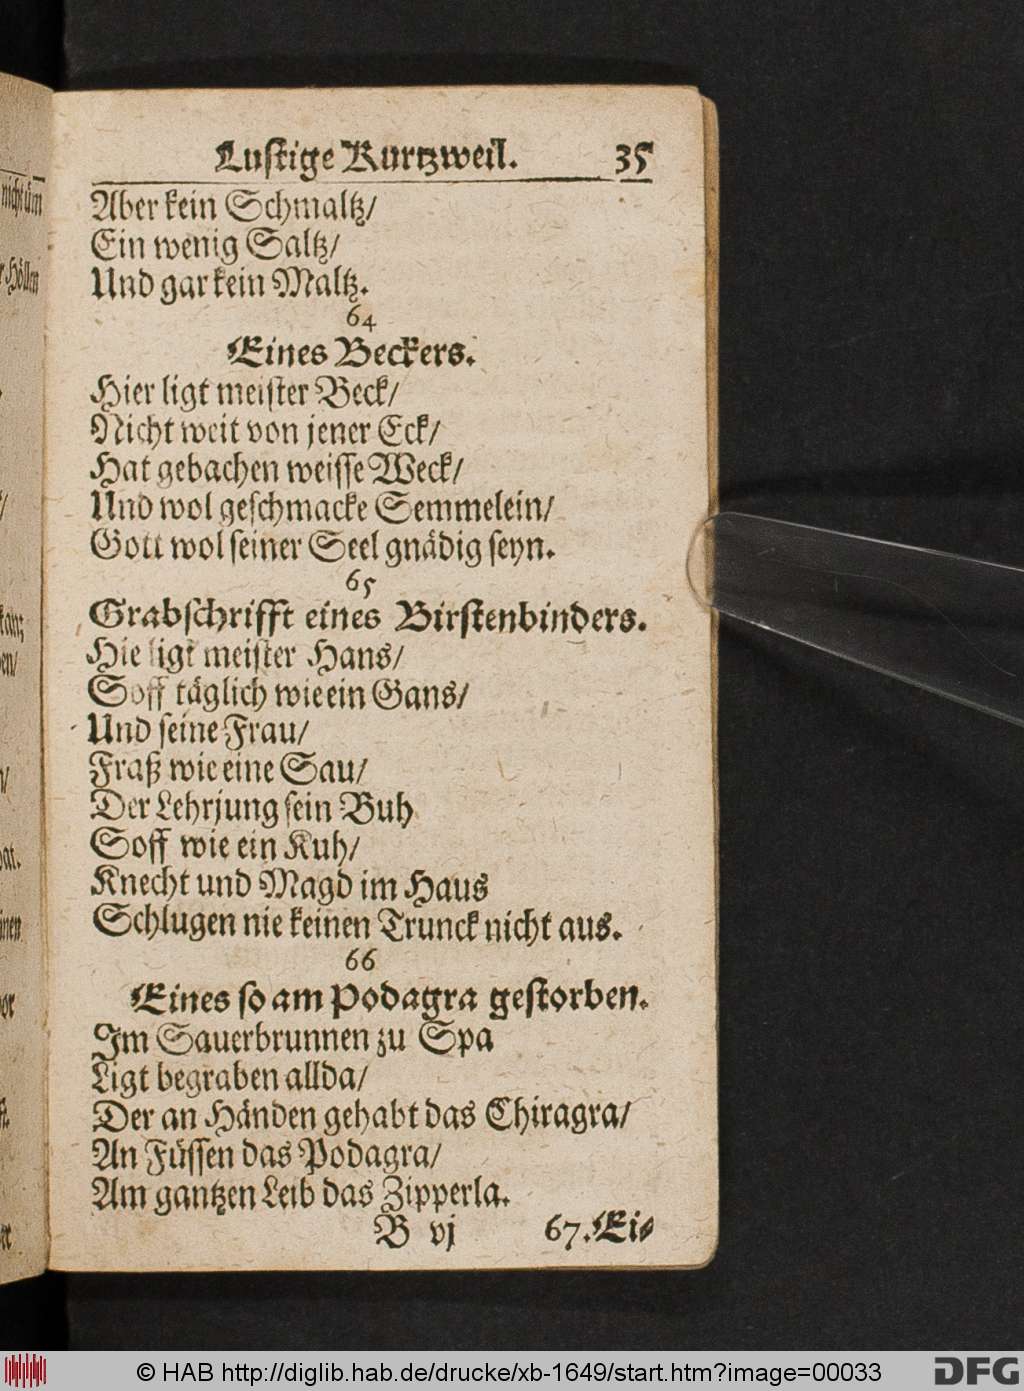 Lustige Kurtzweil. 35
Aber kein Schmaltz/
Ein wenig Saltz/
Und gar kein Maltz.
64
Eines Beckers.
Hier ligt meister Beck/
Nicht weit von jener Eck/
Hat gebachen weisse Weck/
Und wol geschmacke Semmelein/
Gott wol seiner Seel gnädig seyn.
65
Grabschrifft eines Birstenbinders.
Hie ligt meister Hans/
Soff täglich wie ein Gans/
Und seine Frau/
Fraß wie eine Sau/
Der Lehrjung sein Buh
Soff wie ein Kuh/
Knecht und Magd im Haus
Schlugen nie keinen Trunck nicht aus.
66
Eines so am Podagra gestorben.
Im Sauerbrunnen zu Spa
Ligt begraben allda/
Der an Händen gehabt das Chiragra/
An Füssen das Podagra/
Am gantzen Leib das Zipperla.
B vj 67. Ei⸗
nicht üm
Höllen
© HAB http://diglib.hab.de/drucke/xb-1649/start.htm?image=00033
DFG